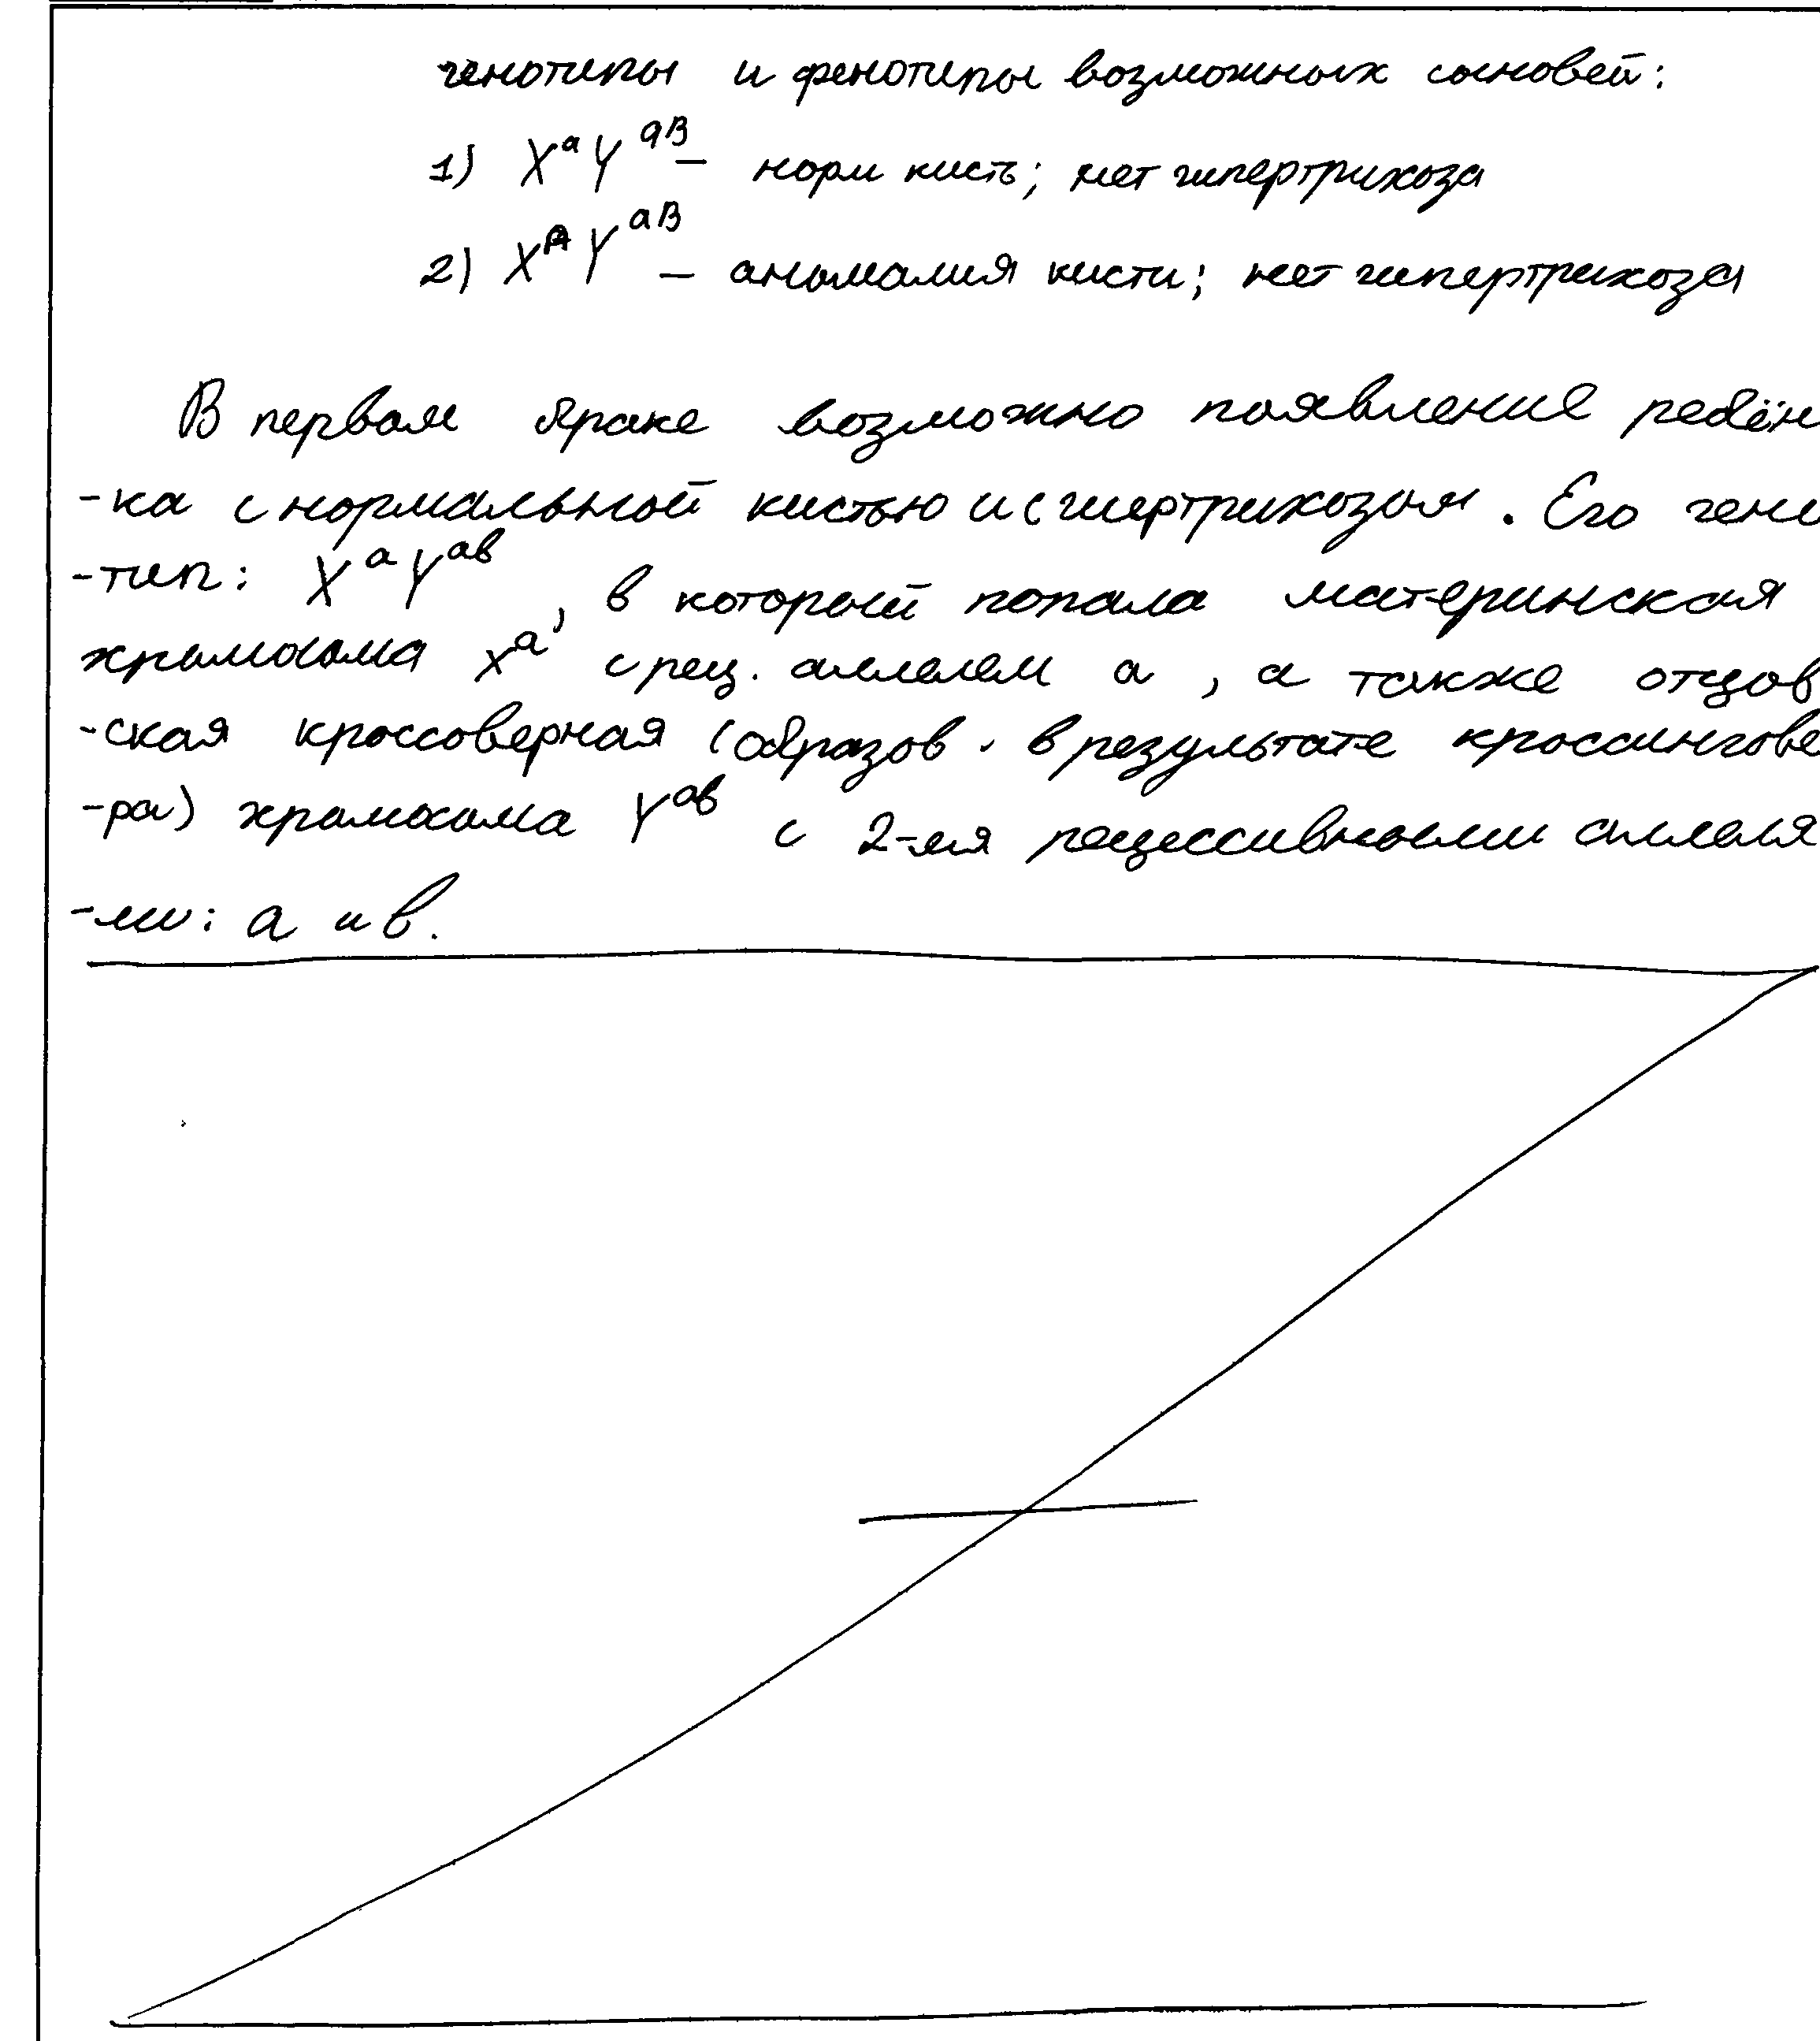 генотипы и фенотипы возможных сыновей:
1) XᵃYᵃᴮ – норм кисть; нет гипертрихоза
2) XᴬYᵃᴮ – аномалия кисти; нет гипертрихоза
В первом браке возможно появление ребён
-ка с нормальной кистью и с гипертрихозом. Его гено
-тип: XᵃYᵃᵇ, в который попала материнская
хромосома xᵃ с рец. аллелем а, а также отцов
-ская кроссоверная (образов. в результате кроссингове
-ра) хромосома Yᵃᵇ с 2-мя рецессивными аллеля
-ми: а и в.